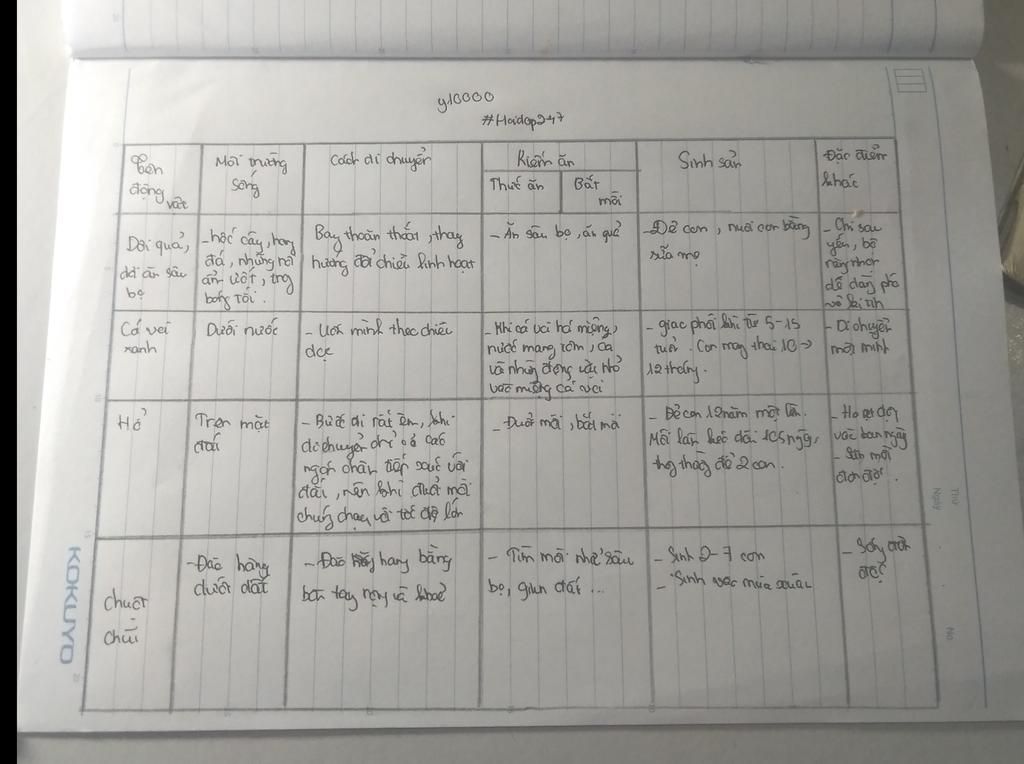 y10000
#Hoidap247
Tên
động
vật
Môi trường
sống
Cách di chuyển
Kiếm ăn
Thức ăn
Bắt
mồi
Sinh sản
Đặc điểm
khác
Dơi quả,
dơi ăn sâu
bọ
- hốc cây, hang
đá, những nơi
ẩm ướt, trong
bóng tối.
Bay thoăn thoắt, thay
hướng đổi chiều linh hoạt
- Ăn sâu bọ, ăn quả
- Đẻ con, nuôi con bằng
sữa mẹ
- Chi sau
yếu, bộ
răng nhọn
dễ dàng phá
vỡ
Cá voi
xanh
Dưới nước
- Uốn mình theo chiều
dọc
- Khi cá voi há miệng,
nước mang tôm, cá
và những động vật nhỏ
vào miệng cá voi
- giao phối khi từ 5-15
tuổi. Con mang thai 10->
12 tháng.
- Di chuyển
một mình
Hổ
Trên mặt
đất
- Bước đi rất êm, khi
di chuyển chỉ có các
ngón chân tiếp xúc với
đất, nên khi đuổi mồi
chúng chạy với tốc độ lớn
- Đuổi mồi, bắt mồi
- Đẻ con 12 năm một lần.
Mỗi lần kéo dài 105 ngày,
thg thường đẻ 2 con.
- Hoạt động
vào ban ngày
- Săn mồi
đơn độc
Chuột
chũi
- Đào hang
dưới đất
- Đào hang bằng
bàn tay rộng và khoẻ
- Tìm mồi như sâu
bọ, giun đất ...
- Sinh 2-7 con
- Sinh vào mùa xuân
- Sống đơn
độc
KOKUYO
Thứ
Ngày
No